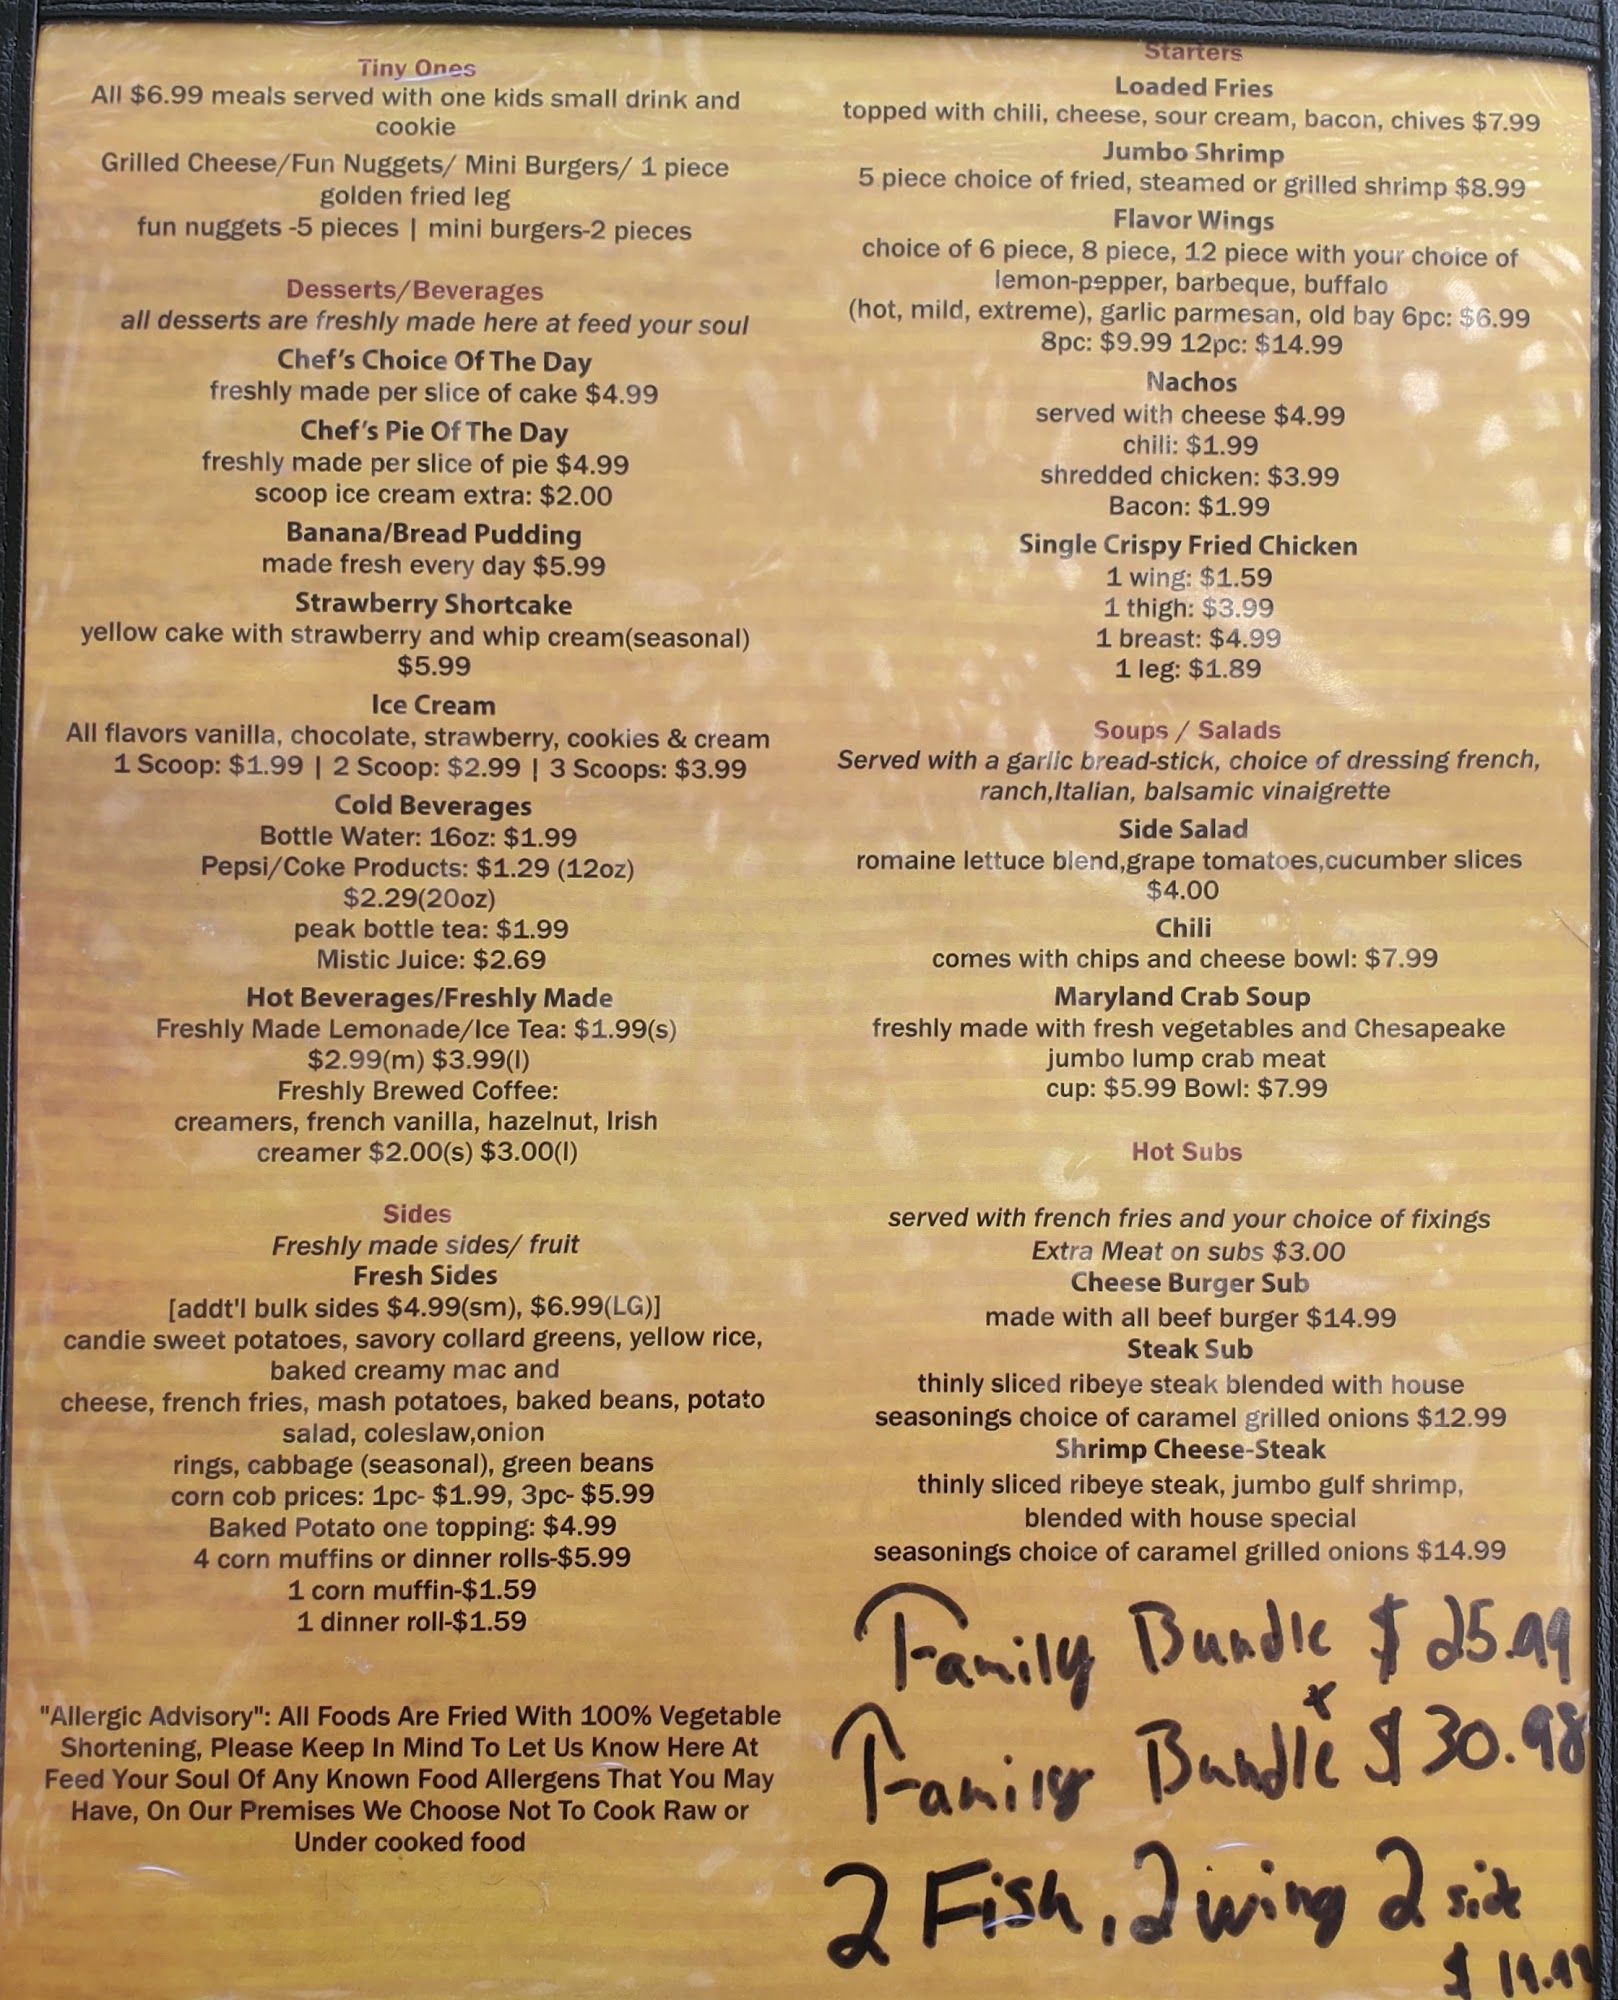 Tiny Ones
All $6.99 meals served with one kids small drink and
cookie
Grilled Cheese/Fun Nuggets/ Mini Burgers/ 1 piece
golden fried leg
fun nuggets -5 pieces | mini burgers-2 pieces
Desserts/Beverages
all desserts are freshly made here at feed your soul
Chef's Choice Of The Day
freshly made per slice of cake $4.99
Chef's Pie Of The Day
freshly made per slice of pie $4.99
scoop ice cream extra: $2.00
Banana/Bread Pudding
made fresh every day $5.99
Strawberry Shortcake
yellow cake with strawberry and whip cream(seasonal)
$5.99
Ice Cream
All flavors vanilla, chocolate, strawberry, cookies & cream
1 Scoop: $1.99 | 2 Scoop: $2.99 | 3 Scoops: $3.99
Cold Beverages
Bottle Water: 16oz: $1.99
Pepsi/Coke Products: $1.29 (12oz)
$2.29(20oz)
peak bottle tea: $1.99
Mistic Juice: $2.69
Hot Beverages/Freshly Made
Freshly Made Lemonade/Ice Tea: $1.99(s)
$2.99(m) $3.99(l)
Freshly Brewed Coffee:
creamers, french vanilla, hazelnut, Irish
creamer $2.00(s) $3.00(l)
Sides
Freshly made sides/ fruit
Fresh Sides
[addt'l bulk sides $4.99(sm), $6.99(LG)]
candie sweet potatoes, savory collard greens, yellow rice,
baked creamy mac and
cheese, french fries, mash potatoes, baked beans, potato
salad, coleslaw,onion
rings, cabbage (seasonal), green beans
corn cob prices: 1pc- $1.99, 3pc- $5.99
Baked Potato one topping: $4.99
4 corn muffins or dinner rolls-$5.99
1 corn muffin-$1.59
1 dinner roll-$1.59
"Allergic Advisory": All Foods Are Fried With 100% Vegetable
Shortening, Please Keep In Mind To Let Us Know Here At
Feed Your Soul Of Any Known Food Allergens That You May
Have, On Our Premises We Choose Not To Cook Raw or
Under cooked food
Starters
Loaded Fries
topped with chili, cheese, sour cream, bacon, chives $7.99
Jumbo Shrimp
5 piece choice of fried, steamed or grilled shrimp $8.99
Flavor Wings
choice of 6 piece, 8 piece, 12 piece with your choice of
lemon-pepper, barbeque, buffalo
(hot, mild, extreme), garlic parmesan, old bay 6pc: $6.99
8pc: $9.99 12pc: $14.99
Nachos
served with cheese $4.99
chili: $1.99
shredded chicken: $3.99
Bacon: $1.99
Single Crispy Fried Chicken
1 wing: $1.59
1 thigh: $3.99
1 breast: $4.99
1 leg: $1.89
Soups / Salads
Served with a garlic bread-stick, choice of dressing french,
ranch,Italian, balsamic vinaigrette
Side Salad
romaine lettuce blend,grape tomatoes,cucumber slices
$4.00
Chili
comes with chips and cheese bowl: $7.99
Maryland Crab Soup
freshly made with fresh vegetables and Chesapeake
jumbo lump crab meat
cup: $5.99 Bowl: $7.99
Hot Subs
served with french fries and your choice of fixings
Extra Meat on subs $3.00
Cheese Burger Sub
made with all beef burger $14.99
Steak Sub
thinly sliced ribeye steak blended with house
seasonings choice of caramel grilled onions $12.99
Shrimp Cheese-Steak
thinly sliced ribeye steak, jumbo gulf shrimp,
blended with house special
seasonings choice of caramel grilled onions $14.99
Family Bundle $25.99
Family Bundle* $30.98
2 Fish, 2 wing 2 side
$19.99